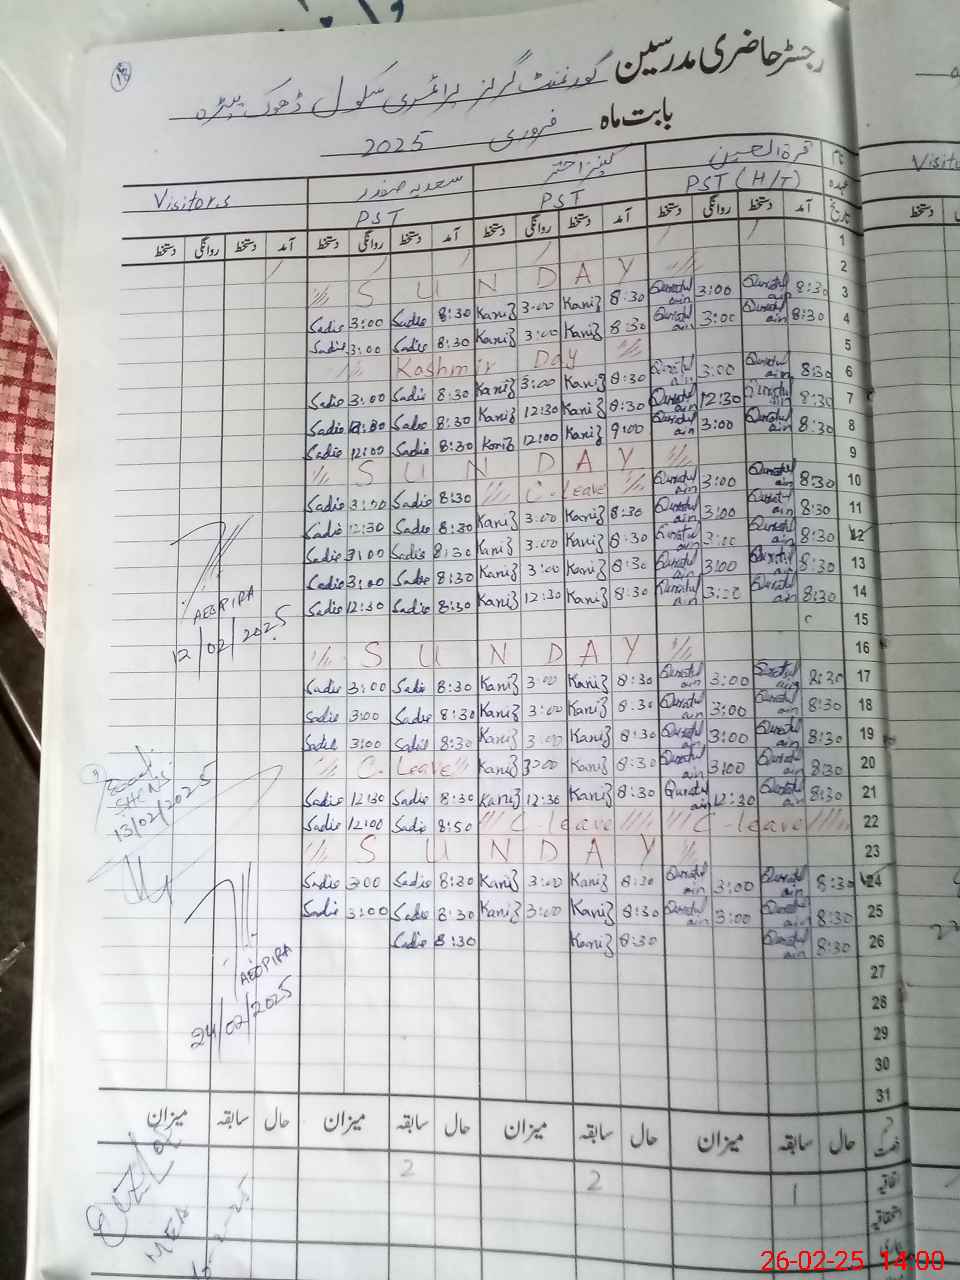 رجسٹر حاضری مدرسین
گورنمنٹ گرلز پرائمری سکول ڈھوک
بابت ماہ فروری 2025
نام قرۃ العین کنیز اختر سعدیہ صفدر Visitors
عہدہ PST (H/T) PST PST
تاریخ آمد دستخط روانگی دستخط آمد دستخط روانگی دستخط آمد دستخط روانگی دستخط آمد دستخط روانگی دستخط
1
S U N D A Y 2
Sadie 3:00 Sadie 8:30 Kaniz 3:00 Kaniz 8:30 Quratul ain 3:00 Quratul ain 8:30 3
Sadie 3:00 Sadie 8:30 Kaniz 3:00 Kaniz 8:30 Quratul ain 3:00 Quratul ain 8:30 4
Kashmir Day 5
Sadie 3:00 Sadie 8:30 Kaniz 3:00 Kaniz 8:30 Quratul ain 3:00 Quratul ain 8:30 6
Sadie Sadie 8:30 Kaniz 12:30 Kaniz 8:30 Quratul ain 12:30 Quratul ain 8:30 7
Sadie 12:00 Sadie 8:30 Kaniz 12:00 Kaniz 9:00 Quratul ain 3:00 Quratul ain 8:30 8
S U N D A Y 9
Sadie 3:00 Sadie 8:30 C-leave Quratul ain 3:00 Quratul ain 8:30 10
Sadie 12:30 Sadie 8:30 Kaniz 3:00 Kaniz 8:30 Quratul ain 3:00 Quratul ain 8:30 11
Sadie 3:00 Sadie 8:30 Kaniz 3:00 Kaniz 8:30 Quratul ain 3:00 Quratul ain 8:30 12
Sadie 3:00 Sadie 8:30 Kaniz 3:00 Kaniz 8:30 Quratul ain 3:00 Quratul ain 8:30 13
Sadie 12:30 Sadie 8:30 Kaniz 12:30 Kaniz 8:30 Quratul ain 3:00 Quratul ain 8:30 14
AEO PIRA
12/02/2025
15
S U N D A Y 16
Sadie 3:00 Sadie 8:30 Kaniz 3:00 Kaniz 8:30 Quratul ain 3:00 Quratul ain 8:30 17
Sadie 3:00 Sadie 8:30 Kaniz 3:00 Kaniz 8:30 Quratul ain 3:00 Quratul ain 8:30 18
Sadie 3:00 Sadie 8:30 Kaniz 3:00 Kaniz 8:30 Quratul ain 3:00 Quratul ain 8:30 19
C. Leave Kaniz 3:00 Kaniz 8:30 Quratul ain 3:00 Quratul ain 8:30 20
Sadie 12:30 Sadie 8:30 Kaniz 12:30 Kaniz 8:30 Quratul ain 12:30 Quratul ain 8:30 21
13/02/2025
Sadie 12:00 Sadie 8:50 C-leave C-leave 22
S U N D A Y 23
Sadie 3:00 Sadie 8:30 Kaniz 3:00 Kaniz 8:30 Quratul ain 3:00 Quratul ain 8:30 24
Sadie 3:00 Sadie 8:30 Kaniz 3:00 Kaniz 8:30 Quratul ain 3:00 Quratul ain 8:30 25
Sadie 8:30 Kaniz 8:30 Quratul ain 8:30 26
AEO PIRA
24/02/2025
27
28
29
30
31
حال سابقہ میزان حال سابقہ میزان حال سابقہ میزان حال سابقہ میزان
اتفاقیہ 1 2 2
استحقاقیہ
MEA
Visitor
دستخط
26-02-25 14:00